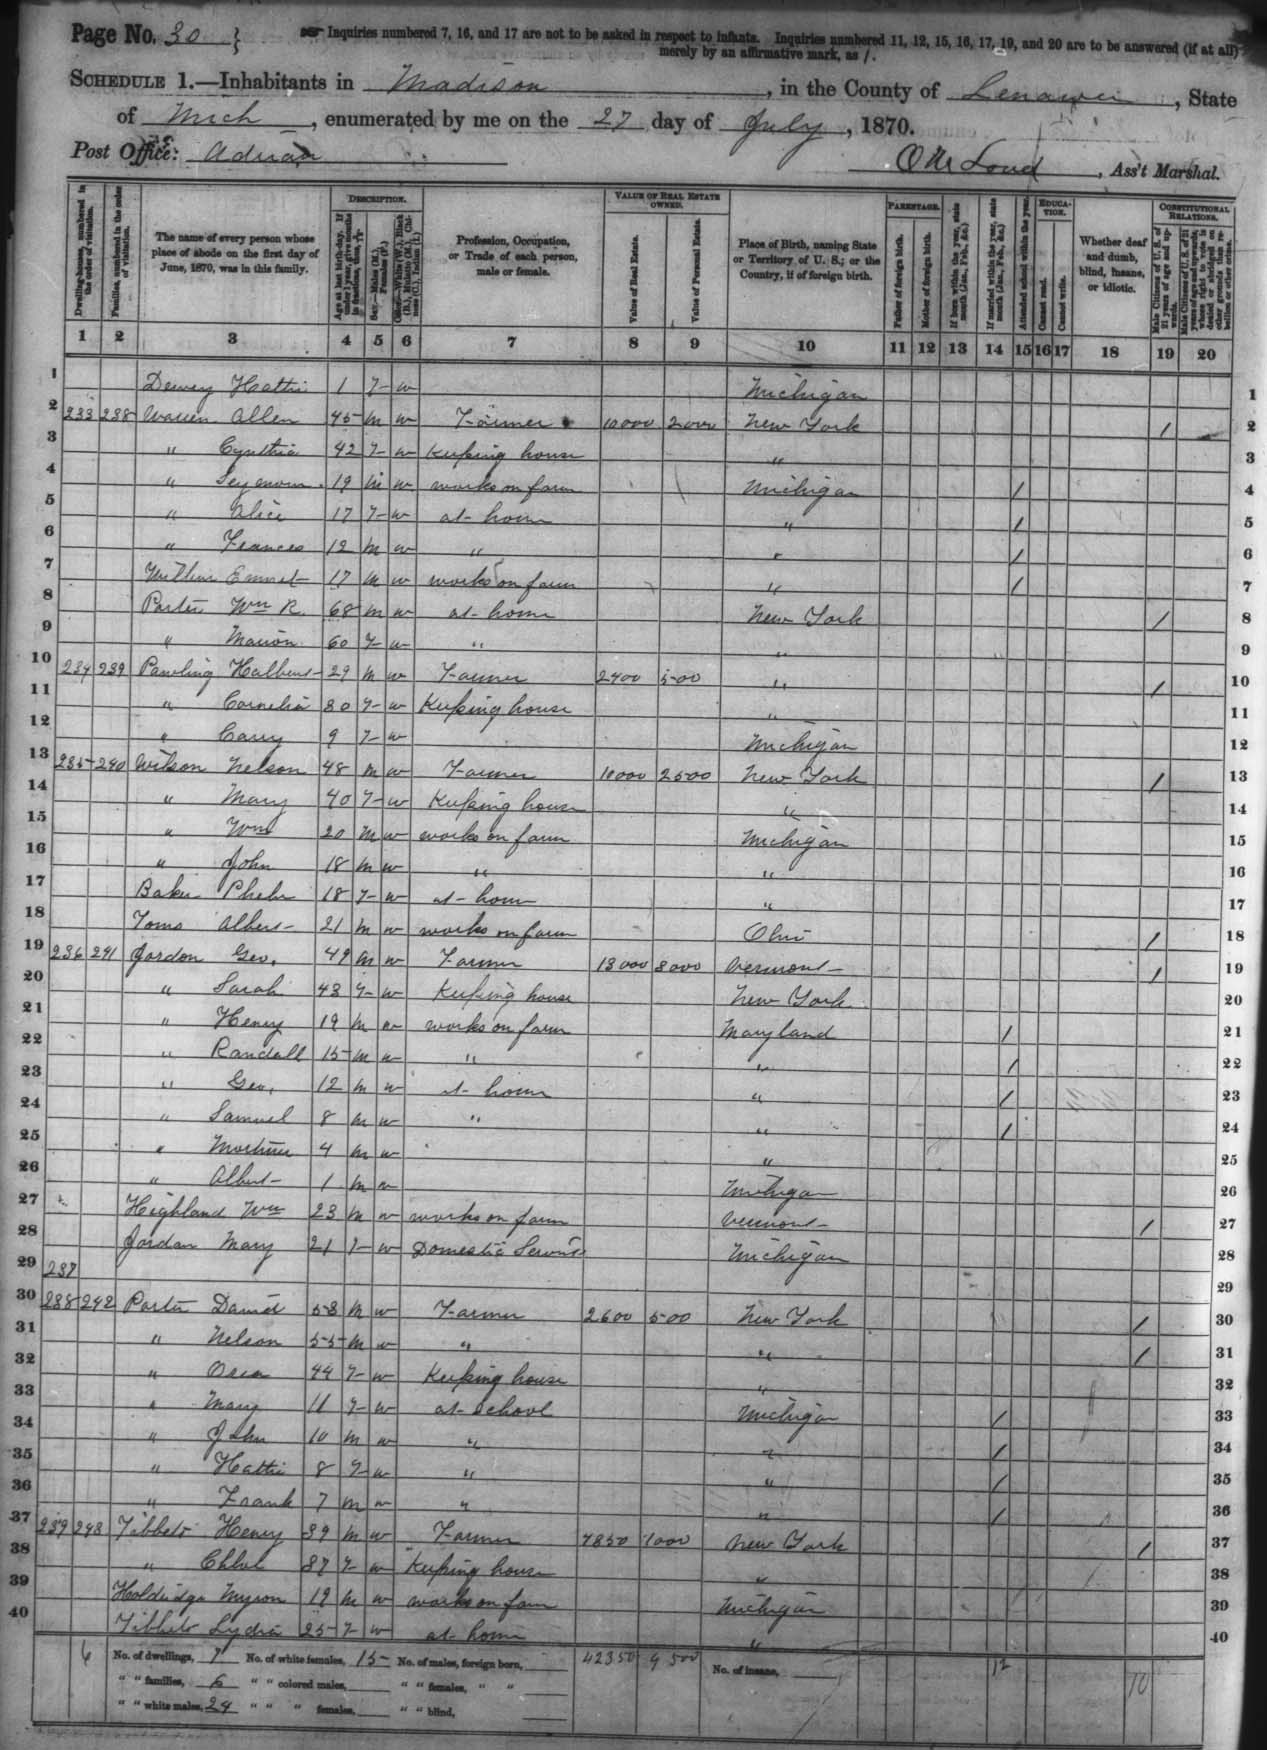 Page No. 30 } Inquiries numbered 7, 16, and 17 are not to be asked in respect to infants. Inquiries numbered 11, 12, 15, 16, 17, 19, and 20 are to be answered (if at all)
merely by an affirmative mark, as /.
SCHEDULE 1.—Inhabitants in Madison, in the County of Lenawee, State
of Mich, enumerated by me on the 27 day of July, 1870.
Post Office: Adrian
Loud, Ass't Marshal.
DESCRIPTION. VALUE OF REAL ESTATE OWNED. PARENTAGE. EDUCATION. CONSTITUTIONAL RELATIONS.
Dwelling-houses, numbered in the order of visitation.
Families, numbered in the order of visitation.
The name of every person whose place of abode on the first day of June, 1870, was in this family.
Age at last birth-day. If under 1 year, give months in fractions, thus, 
Sex.—Males (M.), Females (F.)
Color.—White (W.), Black (B.), Mulatto (M.), Chinese (C.), Indian (I.)
Profession, Occupation, or Trade of each person, male or female.
Value of Real Estate.
Value of Personal Estate.
Place of Birth, naming State or Territory of U. S.; or the Country, if of foreign birth.
Father of foreign birth.
Mother of foreign birth.
If born within the year, state month (Jan., Feb., &c.)
If married within the year, state month (Jan., Feb., &c.)
Attended school within the year.
Cannot read.
Cannot write.
Whether deaf and dumb, blind, insane, or idiotic.
Male Citizens of U. S. of 21 years of age and upwards.
Male Citizens of U. S. of 21 years of age and upwards, whose right to vote is denied or abridged on other grounds than rebellion or other crime.
1 2 3 4 5 6 7 8 9 10 11 12 13 14 15 16 17 18 19 20
1 Dewey Hattie 1 F W Michigan 1
2 233 238 Warren Allen 45 M W Farmer 10000 2000 New York / 2
3 " Cynthia 42 F W Keeping house " 3
4 " Seymour 19 M W works on farm Michigan / 4
5 " Alice 17 F W at home " / 5
6 " Frances 12 M W " " / 6
7 Emmet 17 M W works on farm " / 7
8 Porter Wm R. 68 M W at home New York / 8
9 " Marion 60 F W " " 9
10 234 239 Pawling Halbert 29 M W Farmer 2400 500 " / 10
11 " Cornelia 30 F W Keeping house " 11
12 " Carry 9 F W Michigan 12
13 235 240 Wilson Nelson 48 M W Farmer 10000 2500 New York / 13
14 " Mary 40 F W Keeping house " 14
15 " Wm 20 M W works on farm Michigan 15
16 " John 18 M W " " 16
17 Baker Phebe 18 F W at home " 17
18 Toms Albert 21 M W works on farm Ohio / 18
19 236 241 Jordon Geo. 49 M W Farmer 13000 3000 Vermont / 19
20 " Sarah 43 F W Keeping house New York 20
21 " Henry 19 M W works on farm Maryland / 21
22 " Randall 15 M W " " / 22
23 " Geo. 12 M W at home " / 23
24 " Samuel 8 M W " " / 24
25 " Mortimer 4 M W " 25
26 " Albert 1 M W Michigan 26
27 Highland Wm 23 M W works on farm Vermont / 27
28 Jordan Mary 21 F W Domestic Servt Michigan 28
29 237 29
30 238 242 Porter David 53 M W Farmer 2600 500 New York / 30
31 " Nelson 55 M W " " / 31
32 " 44 F W Keeping house " 32
33 " Mary 11 F W at school Michigan / 33
34 " John 10 M W " " / 34
35 " Hattie 8 F W " " / 35
36 " Frank 7 M W " " / 36
37 239 243 Tibbets Henry 39 M W Farmer 4350 1000 New York / 37
38 " Chloe 37 F W Keeping house " 38
39 Holdridge Myron 19 M W works on farm Michigan 39
40 Tibbets Lydia 25 F W at home " 40
6 No. of dwellings, 7 No. of white females, 15 No. of males, foreign born, 42350 9500 No. of insane, 12 10
" " families, 6 " " colored males, " " females, " "
" " white males, 24 " " " females, " " blind,